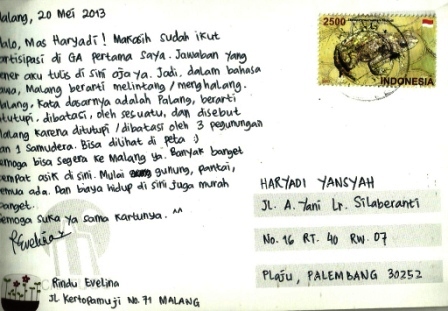 Malang, 20 Mei 2013
Halo, Mas Haryadi! Makasih sudah ikut
partisipasi di GA pertama saya. Jawaban yang
bener aku tulis di sini aja ya. Jadi, dalam bahasa
Jawa, Malang berarti melintang / menghalang.
Malang, kata dasarnya adalah Palang, berarti
ditutupi, dibatasi, oleh sesuatu, dan disebut
Malang karena ditutupi / dibatasi oleh 3 pegunungan
dan 1 samudera. Bisa dilihat di peta :)
Semoga bisa segera ke Malang ya. Banyak banget
tempat asik di sini. Mulai gunung, pantai,
semua ada. Dan biaya hidup di sini juga murah
banget.
Semoga suka ya sama kartunya. ^^
REvelina
Rindu Evelina
Jl Kertopamuji No. 71 MALANG
2500
INDONESIA
HARYADI YANSYAH
Jl. A. Yani Lr. Silaberanti
No. 16 RT. 40 RW. 07
Plaju, PALEMBANG 30252